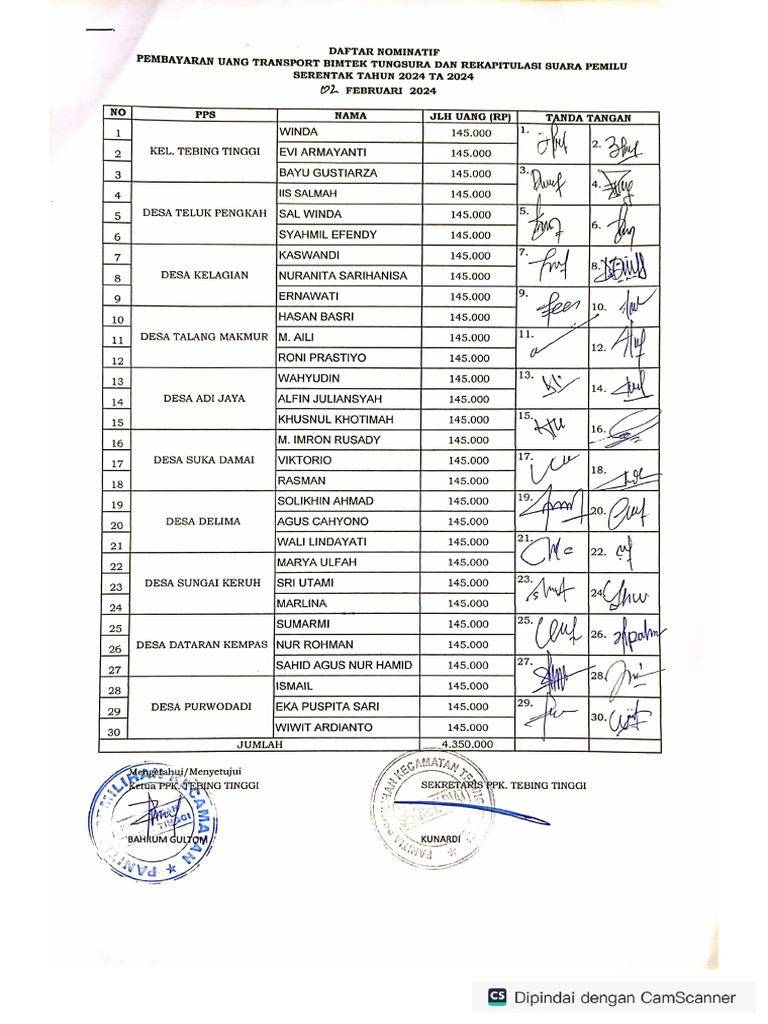 DAFTAR NOMINATIF
PEMBAYARAN UANG TRANSPORT BIMTEK TUNGSURA DAN REKAPITULASI SUARA PEMILU
SERENTAK TAHUN 2024 TA 2024
02 FEBRUARI 2024
NO PPS NAMA JLH UANG (RP) TANDA TANGAN
1 WINDA 145.000 1.
2 KEL. TEBING TINGGI EVI ARMAYANTI 145.000 2.
3 BAYU GUSTIARZA 145.000 3.
4 IIS SALMAH 145.000 4.
5 DESA TELUK PENGKAH SAL WINDA 145.000 5.
6 SYAHMIL EFENDY 145.000 6.
7 KASWANDI 145.000 7.
8 DESA KELAGIAN NURANITA SARIHANISA 145.000 8.
9 ERNAWATI 145.000 9.
10 HASAN BASRI 145.000 10.
11 DESA TALANG MAKMUR M. AILI 145.000 11.
12 RONI PRASTIYO 145.000 12.
13 WAHYUDIN 145.000 13.
14 DESA ADI JAYA ALFIN JULIANSYAH 145.000 14.
15 KHUSNUL KHOTIMAH 145.000 15.
16 M. IMRON RUSADY 145.000 16.
17 DESA SUKA DAMAI VIKTORIO 145.000 17.
18 RASMAN 145.000 18.
19 SOLIKHIN AHMAD 145.000 19.
20 DESA DELIMA AGUS CAHYONO 145.000 20.
21 WALI LINDAYATI 145.000 21.
22 MARYA ULFAH 145.000 22.
23 DESA SUNGAI KERUH SRI UTAMI 145.000 23.
24 MARLINA 145.000 24
25 SUMARMI 145.000 25.
26 DESA DATARAN KEMPAS NUR ROHMAN 145.000 26.
27 SAHID AGUS NUR HAMID 145.000 27.
28 ISMAIL 145.000 28.
29 DESA PURWODADI EKA PUSPITA SARI 145.000 29.
30 WIWIT ARDIANTO 145.000 30.
JUMLAH 4.350.000
Mengetahui/Menyetujui
Ketua PPK. TEBING TINGGI SEKRETARIS PPK. TEBING TINGGI
BAHRUM GULTOM KUNARDI
CS Dipindai dengan CamScanner